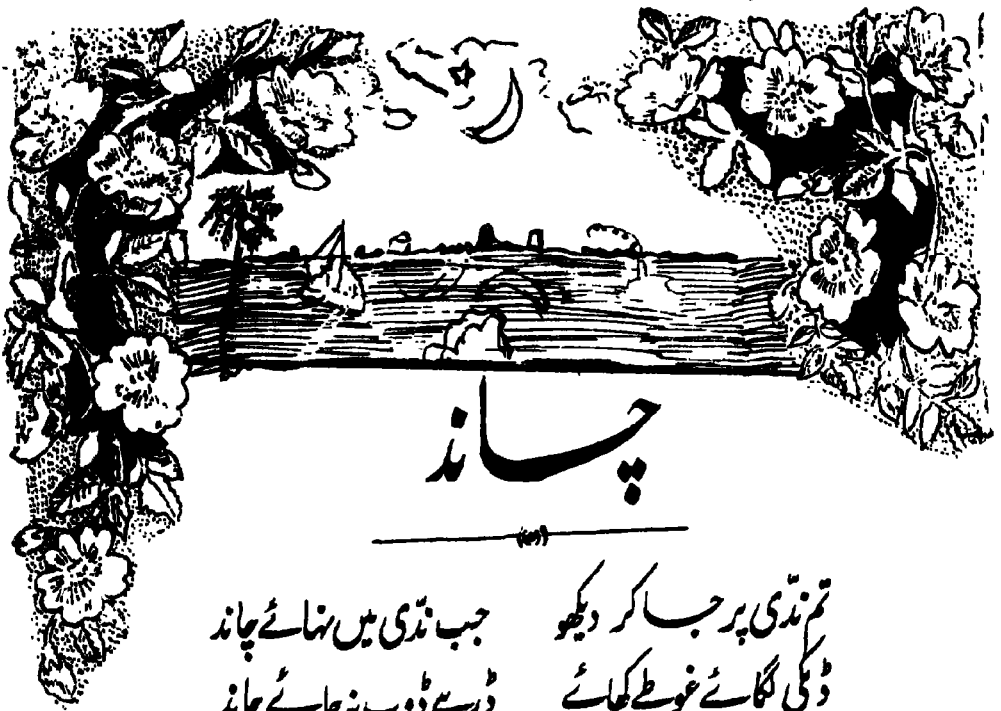 چاند
تم ندّی پر جا کر دیکھو جب ندّی میں نہائے چاند
ڈبکی لگائے غوطے کھائے ڈر ہے ڈوب نہ جائے چاند